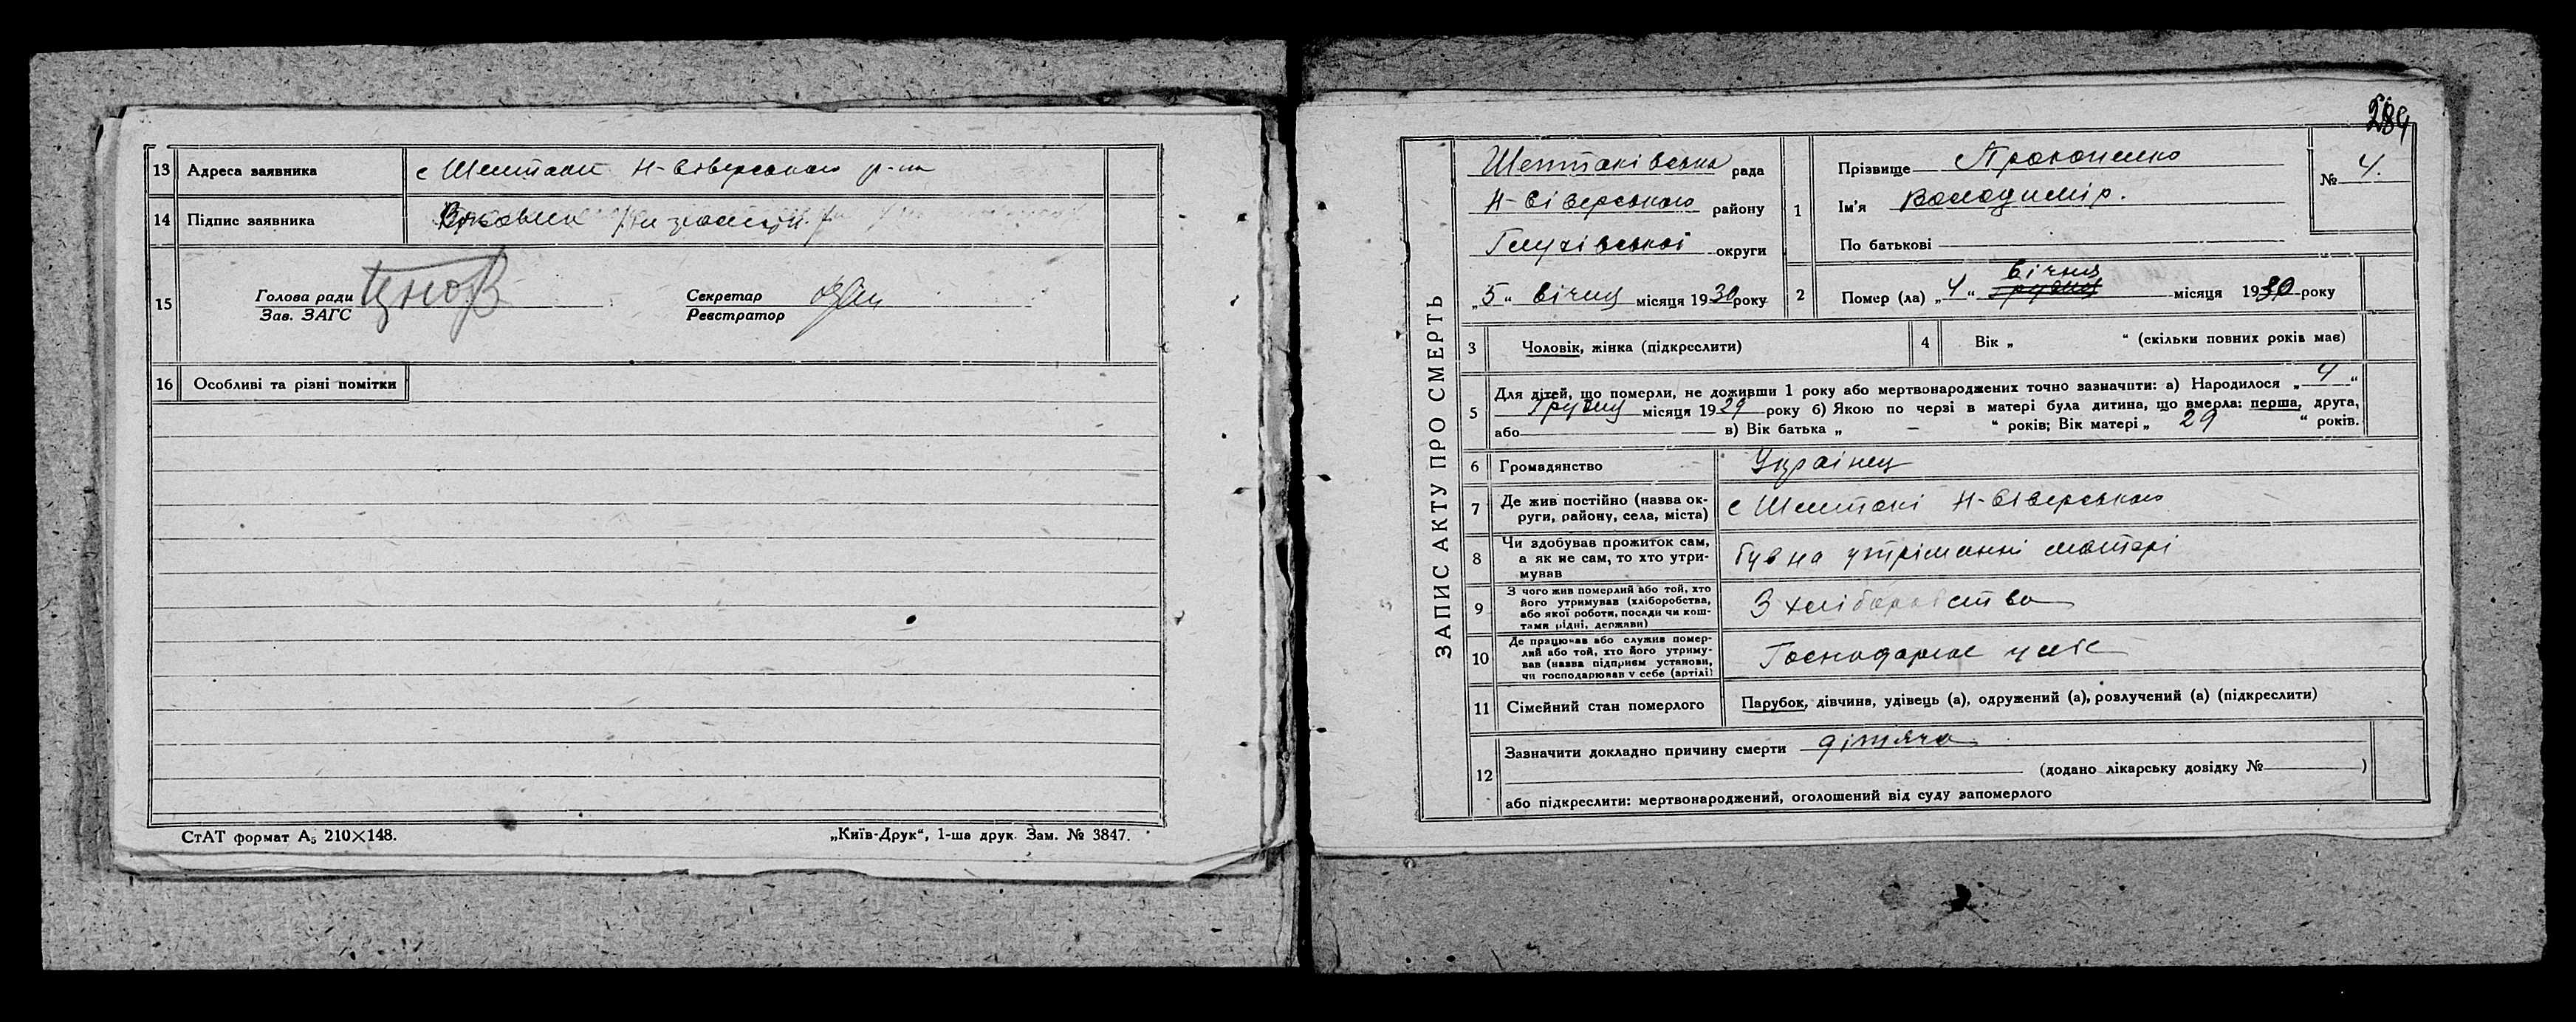 13 Адреса заявника с Шептаки Н-Сіверського р-ну
14 Підпис заявника
15 Голова ради
Зав. ЗАГС
Секретар
Реєстратор
16 Особливі та різні помітки
СтАТ формат А₅ 210×148.
„Київ-Друк“, 1-ша друк. Зам. № 3847.
289
ЗАПИС АКТУ ПРО СМЕРТЬ
Шептаківська рада
Н-Сіверського району
Глухівської округи
„5“ Січня місяця 1930 року
1 Прізвище Прокопенко
Ім'я Володимір.
По батькові
№ 4.
2 Помер (ла) „4“ Січня Грудня місяця 1930 року
3 Чоловік, жінка (підкреслити)
4 Вік „ “ (скільки повних років має)
5 Для дітей, що померли, не доживши 1 року або мертвонароджених точно зазначити: а) Народилося „4“
Грудня місяця 1929 року б) Якою по черзі в матері була дитина, що вмерла: перша, друга,
або в) Вік батька „ – “ років; Вік матері „ 29 “ років.
6 Громадянство Українец
7 Де жив постійно (назва ок-
руги, району, села, міста) с Шептакі Н-Сіверського
8 Чи здобував прожиток сам,
а як не сам, то хто утри-
мував був на утріманні матері
9 З чого жив померлий або той, хто
його утримував (хліборобства,
або якої роботи, посади чи кош-
тами рідні, держави) З хліборобства
10 Де працював або служив помер-
лий або той, хто його утриму-
вав (назва підприєм установи,
чи господарював у себе (артілі)
11 Сімейний стан померлого Парубок, дівчина, удівець (а), одружений (а), розлучений (а) (підкреслити)
12 Зазначити докладно причину смерти дітяча
(додано лікарську довідку № )
або підкреслити: мертвонароджений, оголошений від суду запомерлого